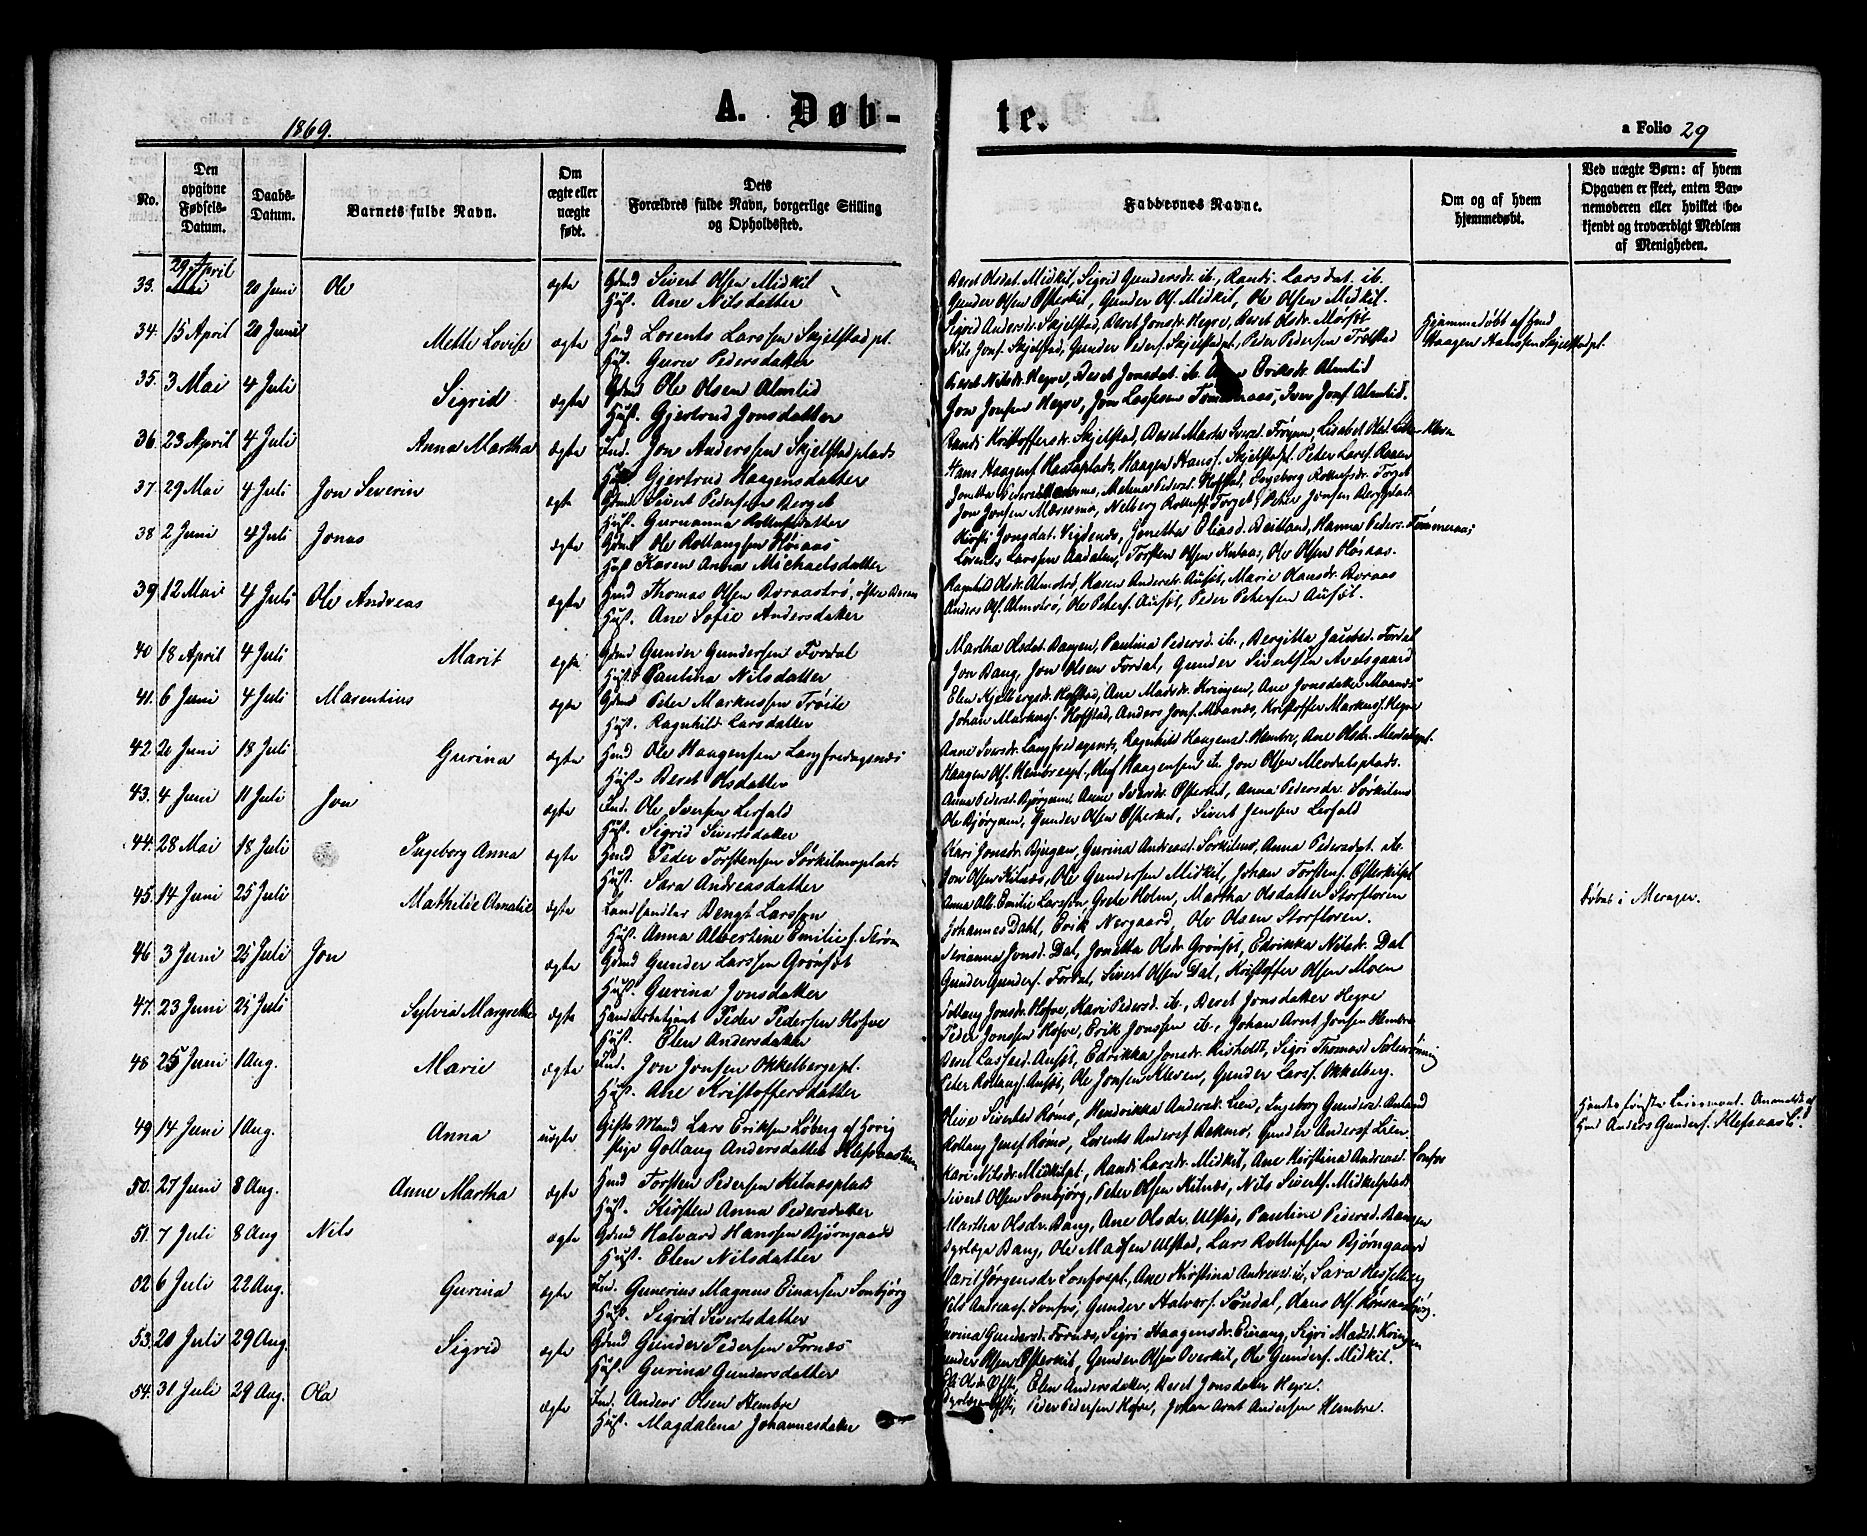 1869.
A. Døb-
te.
a Folio 29
No.
Den opgivne Fødsels-Datum.
Daabs-Datum.
Barnets fulde Navn.
Om ægte eller uægte født.
Dets Forældres fulde Navn, borgerlige Stilling og Opholdssted.
Faddernes Navne.
Om og af hvem hjemmedøbt.
Ved uægte Børn: af hvem Opgaven er skeet, enten Barnemoderen eller hvilket bekjendt og troværdigt Medlem af Menigheden.
33. 29 April 20 Juni Ole ægte Gdmd Sivert Olsen Midkil
Hust. Ane Nilsdatter
Beret Olsdat. Midkil, Sigrid Gundersdr. ib., Randi Larsdat. ib.
Gunder Olsen Østerkil, Gunder Ols. Midkil, Ole Olsen Midkil.
34. 15 April 20 Juni Mette Lovise ægte Hmd Lorents Larssen Skjelstadpl.
Hust. Guru Pedersdatter
Sigrid Andersdr. Skjelstad, Beret Jonsdr. Hegre, Beret Olsdr.
Nils Jons. Skjelstad, Gunder Peders. Skjelstadpl., Peter Pedersen
Hjemmedøbt af Hmd
Haagen Hanssen Skjelstadpl.
35. 3 Mai 4 Juli Sigrid ægte Gdmd Ole Olsen Almlid
Hust. Gjertrud Jonsdatter
Beret Nilsdr. Hegre, Beret Jonsdat. ib. Eriksdr. Almlid
Jon Jonsen Hegre, Jon Lassesen Tømmeraas, Iver Jons. Almlid.
36. 23 April 4 Juli Anna Martha ægte Ind. Jon Anderssen Skjelstadplads
Hust. Gjertrud Haagensdatter
Randi Kristoffersdr. Skjelstad, Beret Marta
Hans Haagens. Haagen Hanss. Skjelstadpl. Peter Lars.
37. 29 Mai 4 Juli Jon Severin ægte Gdmd Sivert Pedersen Berget
Hust. Guruanna Rollufsdatter
Jon Jonsen Mærsmo, Rolluff. Torget, Peter Jonsen Bergplads
38 2 Juni 4 Juli Jonas ægte Gdmd Ole Rollaugsen Høiaas
Hust Karen Anna Michaelsdatter
Kirsti Jonsdat. Jonetha Eliasd. Reitland, Hanna Peders. Tømmeraas
Lorents Larssen Aadalen, Torsten Olsen Ole Olsen Høiaas.
39. 12 Mai 4 Juli Ole Andreas ægte Hmd Thomas Olsen
Hust. Ane Sofie Andersdatter
Ragnhild Olsdr. Almotrø, Karen Andersdr. Auføt, Marie Hansdr. Boraas
Anders Ols. Almotrø, Ole Peters. Auføt, Peder Petersen Auføt.
40 18 April 4 Juli Marit ægte Gdmd Gunder Gundersen Fordal
Hust. Paulina Nilsdatter
Martha Olsdat. Bangen, Paulina Pedersd. ib., Bergitta Fordal
Jon Bang, Jon Olsen Fordal, Gunder Sivertsen Avelsgaard
41. 6 Juni 4 Juli Marentius ægte Gdmd Peter Markussen Trøite
Hust. Ragnhild Larsdatter
Elen Hofstad, Ane Madsdr. Kringen, Ane Jonsdatter
Johan Markuss. Hofstad, Anders Jons. Kristoffer Markuss. Hegre
42. 20 Juni 18 Juli Gurina ægte Hmd Ole Haagensen Langfredagsnes
Hust. Beret Olsdatter
Anne Iversdr. Langfredagsnes, Ragnhild Haagensd. Hembre, Ane Olsdr.
Haagen Ols. Hembrespl., Haagensen ib. Jon Olsen
43. 4 Juni 11 Juli Jon ægte Ind. Ole Iversen Leifald
Hust. Sigrid Sivertsdatter
Anna Pedersd. Bjørgum, Anne Iversdr. Østerkil, Anna Pedersdr. Sørkilmo
Ole Bjørgum, Gunder Olsen Østerkil, Sivert Jenssen Leifald
44. 28 Mai 18 Juli Ingeborg Anna ægte Hmd Peder Torstensen Sørkilmoplads
Hust. Sara Andreasdatter
Kari Jonsdr. Gurina Andreasd. Sørkilmo, Anna Pedersdat. ib.
Jon Olsen Kilnæs, Ole Gundersen Midkil, Johan Torstens. Østerkilpl
45. 14 Juni 25 Juli Mathilde Amalie ægte Landhandler Bengt Larsson
Hust. Anna Albertine Emilie f. Strøm
Anna Alb. Emilie Larsson, Grete Holm, Martha Olsdatter Storfloren
Johannes Dahl, Erik Nergaard, Ole Olsen Storfloren.
Døbt i Merager.
46 3 Juni 25 Juli Jon ægte Gdmd Gunder Larssen Grønføt
Hust. Gurina Jonsdatter
Serianna Jonsd. Dal, Jonetta Olsdr. Grønføt, Edrikka Nilsdr. Dal
Gunder Gunders. Fordal, Sivert Olsen Dal, Kristoffer Olsen Moen
47. 23 Juni 25 Juli Sylvia Margrethe ægte Handelsbetjent Peder Pedersen Hofve
Hust. Elen Andersdatter
Sollaug Jonsdr. Hofve, Kari Pedersd. ib., Beret Jonsdatter Hegre
Peder Jonssen Hofve, Erik Jonssen ib., Johan Arnt Jonsen Hembre
48 25 Juni 1 Aug. Marie ægte Ind. Jon Jonsen Okkelbergpl.
Hust. Ane Kristoffersdatter
Beret Lassesd. Auføt, Edrikka Jonsdr. Sigri Thomasd.
Peter Rollaugs. Auføt, Ole Jonsen Kleven, Gunder Larss. Okkelberg.
49 14 Juni 1 Aug. Anna uægte Gifte Mand Lars Eriksen Løberg af Hovig
Pige Gollaug Andersdatter
Olive Sivertsd. Rømo, Hendrikka Andersd. Lien, Ingeborg Gundersd.
Rollaug Jonss. Rømo, Lorents Anderss. Gunder Anderss. Lien.
Hendes første Leiermaal. Anmeldt af
Hmd Anders Gunders.
50. 27 Juni 8 Aug. Anne Martha ægte Hmd Torsten Pedersen Kilnæsplads
Hust. Kirsten Anna Pedersdatter
Kari Nilsdr. Midkilpl., Randi Larsdr. Midkil, Ane Kirstina Andreasd. Sonfvo
Sivert Olsen Sonbjørg, Peter Olsen Kilnæs, Nils Siverts. Midkilplads
51. 7 Juli 8 Aug Nils ægte Gdmd Halvard Hanssen Bjørngaard
Hust. Elen Nilsdatter
Martha Olsdr. Bang, Ane Olsdr. Ulstad, Pauline Pedersd. Bangen
Dyrlæge Bang, Ole Madsen Ulstad, Lars Rollufsen Bjørngaard
52 6 Juli 22 Aug. Gurina ægte Ind. Gunerius Magnus Einarsen Sonbjørg
Hust. Sigrid Sivertsdatter
Marit Jørgensdr. Sonfvopl., Ane Kirstina Andreasd. ib., Sara Hesselberg
Nils Andreass. Sonfvo, Gunder Halvors. Sondal, Hans Ols.
53. 20 Juli 29 Aug. Sigrid ægte Gdmd Gunder Pedersen Fornæs
Hust. Gurina Gundersdatter
Gurina Gundersd. Fornæs, Sigri Haagensdr. Einang, Sigri Madsd. Kringen
Gunder Olsen Østerkil, Gunder Olsen Overkil, Ole Gunders. Midkil.
54. 31 Juli 29 Aug. Ola ægte Ind. Anders Olsen Hembre
Hust. Magdalena Johannesdatter
Elen Andersdatter, Beret Jonsdatter Hegre.
Peder Pedersen Hofve, Johan Arnt Andersen Hembre.